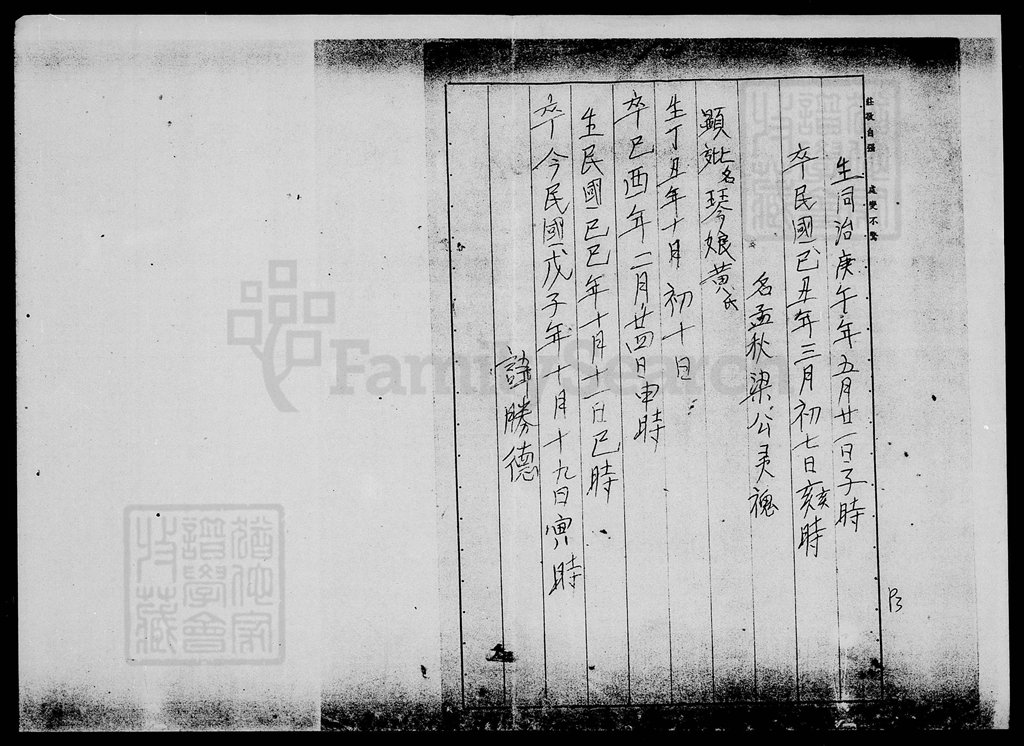 莊敬自強 處變不驚
生同治庚午年五月廿一日子時
卒民國己丑年三月初七日亥時
名孟秋梁公灵魂
顯妣名琴娘黃氏
生丁丑年十月初十日
卒己酉年二月廿四日申時
生民國己巳年十月十一日巳時
卒今民國戊子年十月十九日寅時
諱勝德
B
FamilySearch